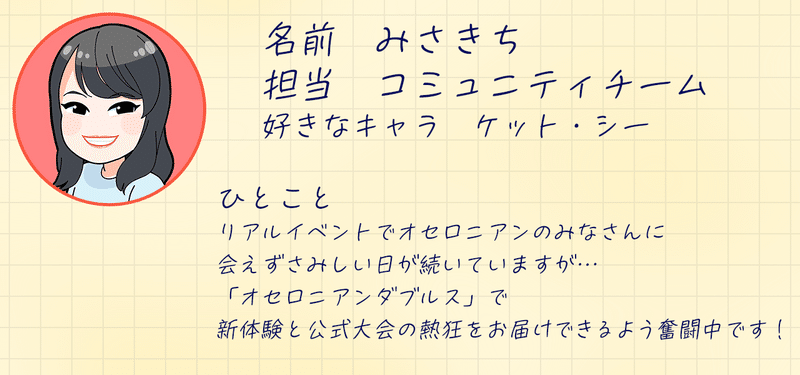 名前　みさきち
担当　コミュニティチーム
好きなキャラ　ケット・シー
ひとこと
リアルイベントでオセロニアンのみなさんに
会えずさみしい日が続いていますが…
「オセロニアンダブルス」で
新体験と公式大会の熱狂をお届けできるよう奮闘中です！